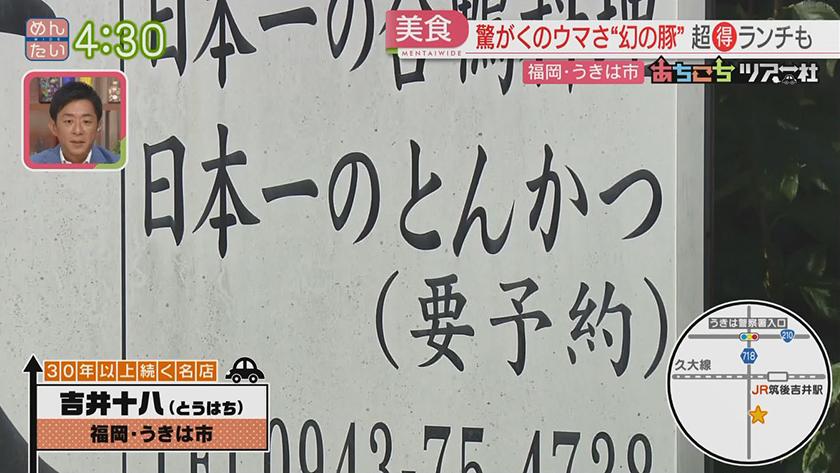 めん
WIDE
たい
4:30
美食
MENTAIWIDE
驚がくのウマさ“幻の豚” 超得ランチも
福岡・うきは市
あちこちツアー社
日本一の合鴨料理
日本一のとんかつ
(要予約)
TEL 0943-75-4728
30年以上続く名店
吉井十八(とうはち)
福岡・うきは市
うきは警察署入口
210
718
久大線
JR筑後吉井駅